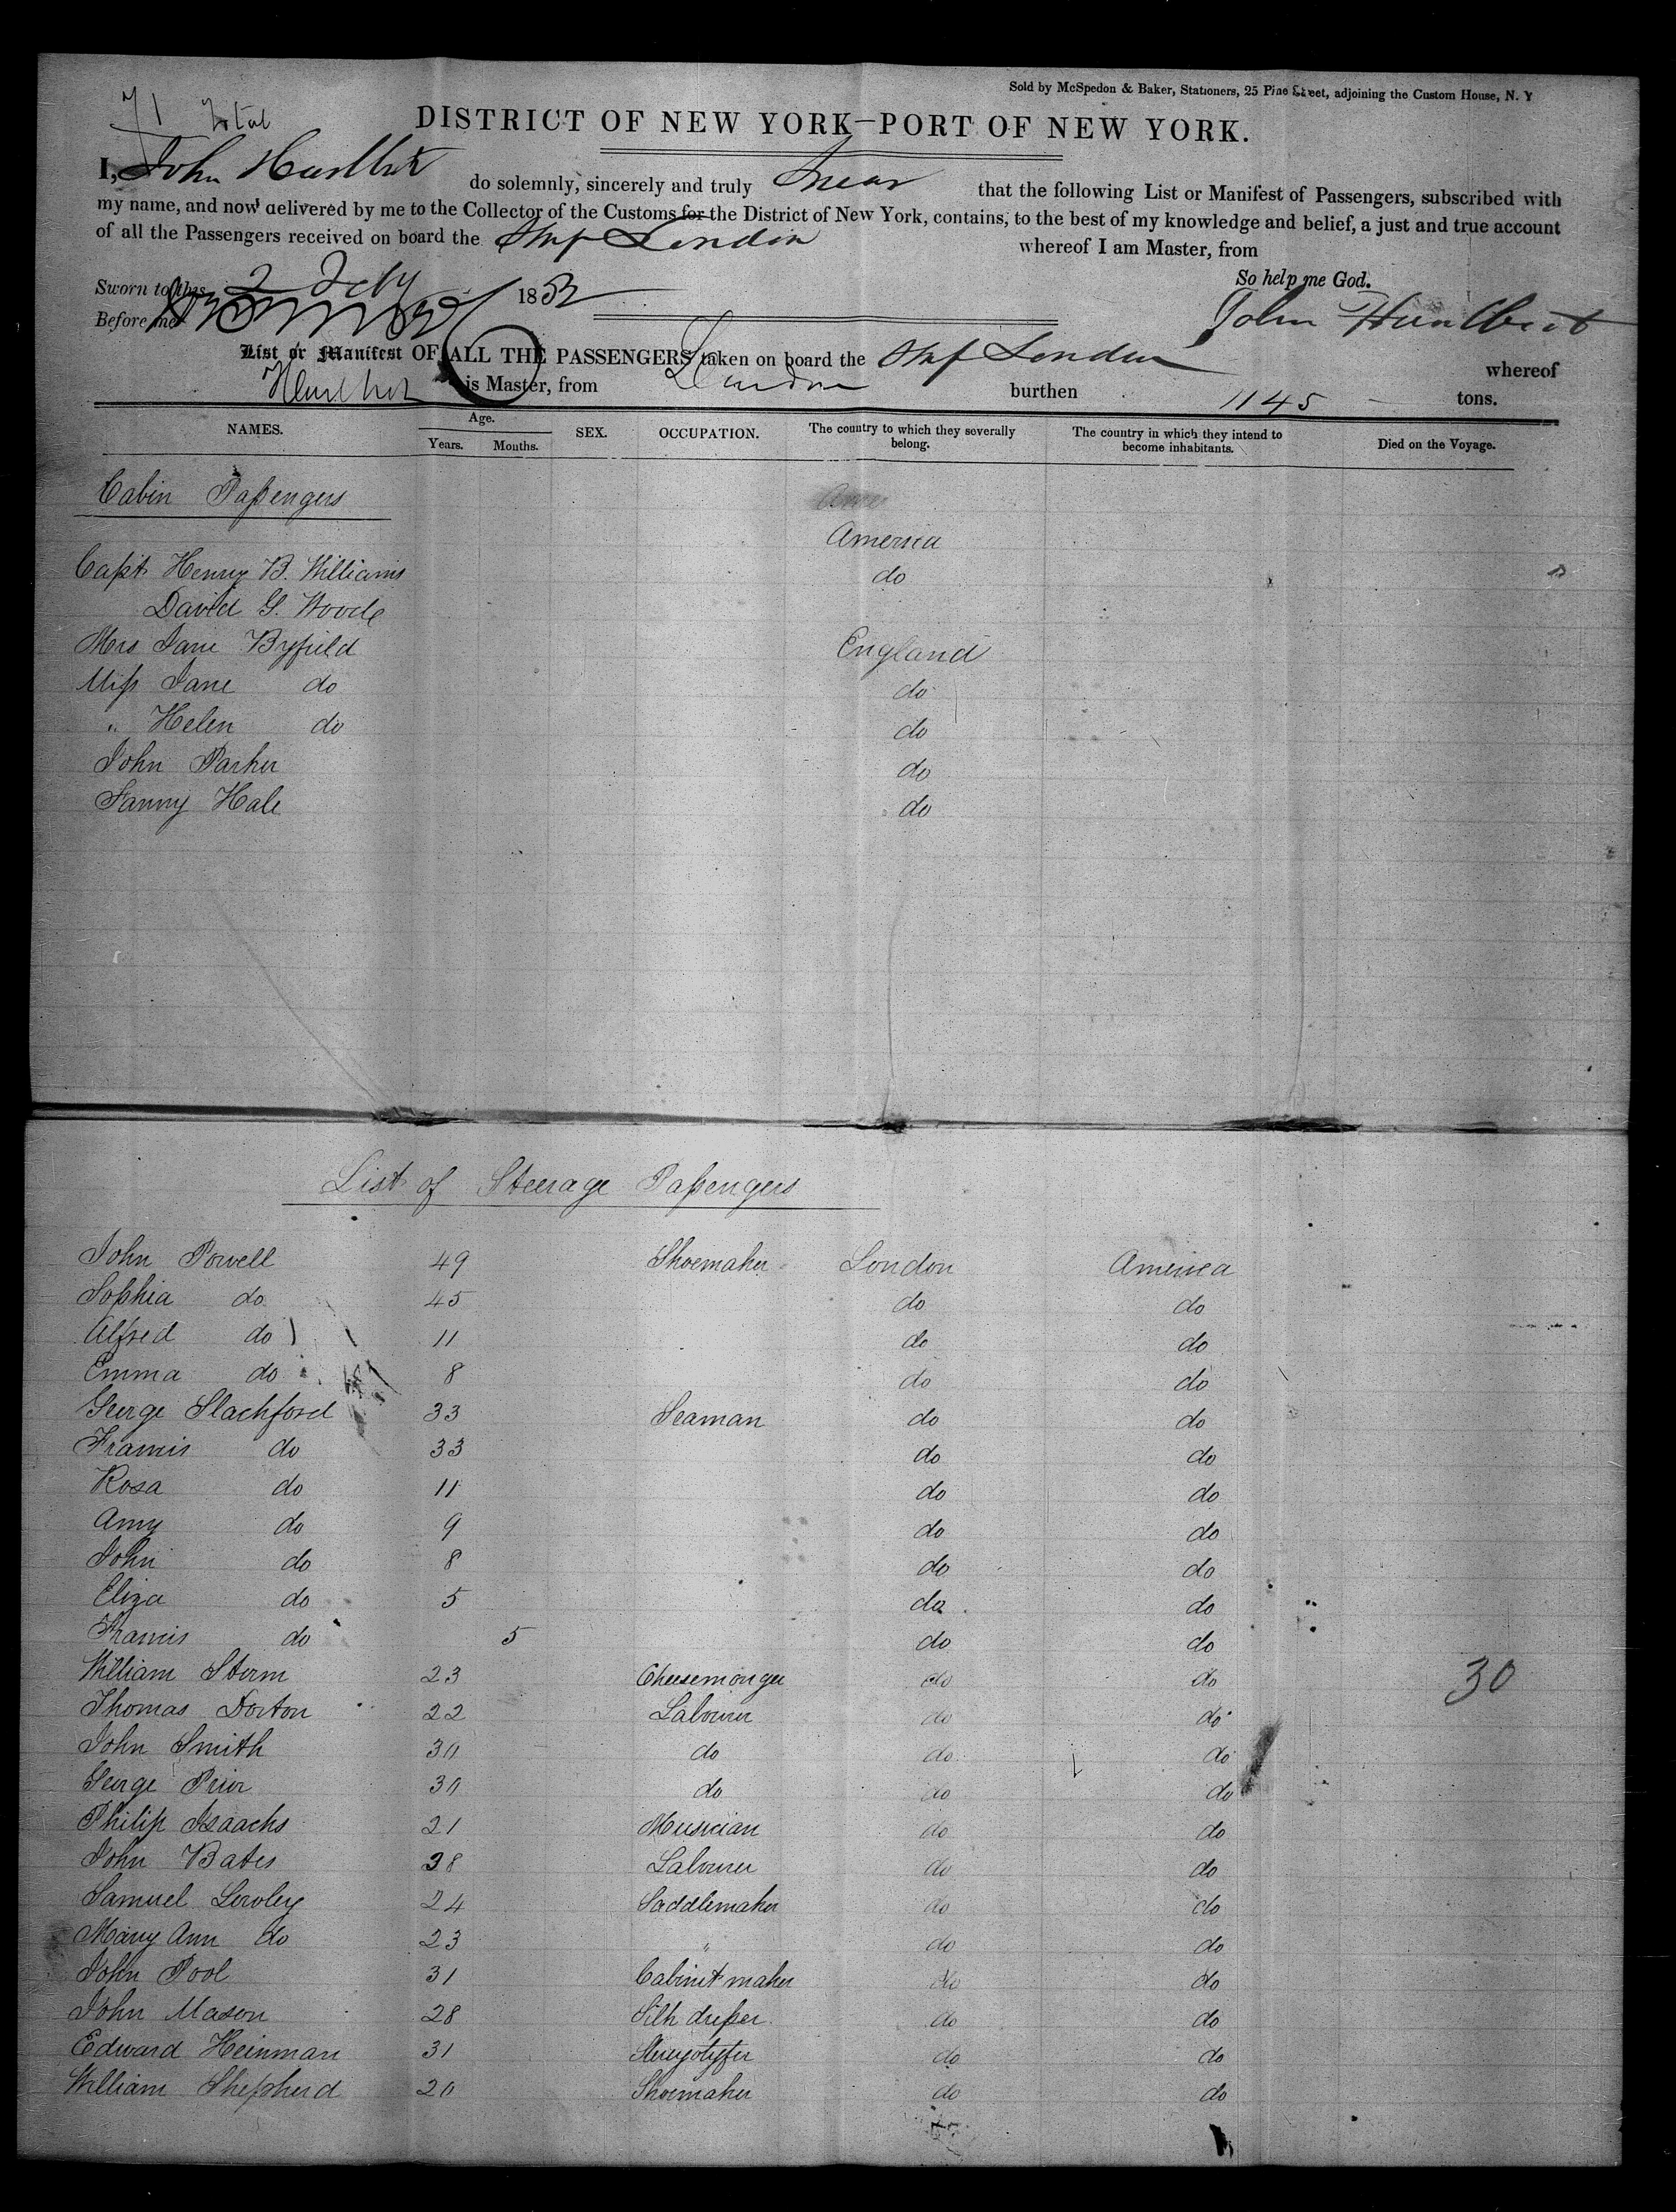 Sold by McSpedon & Baker, Stationers, 25 Pine Street, adjoining the Custom House, N. Y
71 Total
DISTRICT OF NEW YORK—PORT OF NEW YORK.
I, John Hurlbut do solemnly, sincerely and truly Swear that the following List or Manifest of Passengers, subscribed with
my name, and now delivered by me to the Collector of the Customs for the District of New York, contains, to the best of my knowledge and belief, a just and true account
of all the Passengers received on board the Ship London whereof I am Master, from
So help me God.
Sworn to this 2 Feby 1852
Before me
John Hurlbut
List or Manifest OF ALL THE PASSENGERS taken on board the Ship London whereof
Hurlbut is Master, from London burthen 1145 tons.
NAMES. Age. Years. Months. SEX. OCCUPATION. The country to which they severally belong. The country in which they intend to become inhabitants. Died on the Voyage.
Cabin Passengers
America
Capt. Henry B. Williams do
David G. Woode
Mrs Jane Byfield England
Miss Jane do do
" Helen do do
John Parker do
Fanny Hale do
List of Steerage Passengers
John Powell 49 Shoemaker London America
Sophia do 45 do do
Alfred do 11 do do
Emma do 8 do do
George Slachford 33 Seaman do do
Francis do 33 do do
Rosa do 11 do do
Amy do 9 do do
John do 8 do do
Eliza do 5 do do
Francis do 5 do do
William Storm 23 Cheesemonger do do 30
Thomas Dorton 22 Labourer do do
John Smith 30 do do do
George Prior 30 do do do
Philip Isaachs 21 Musician do do
John Bates 38 Labourer do do
Samuel Lowley 24 Saddlemaker do do
Mary Ann do 23 " do do
John Pool 31 Cabinet maker do do
John Mason 28 Silk dresser do do
Edward Heinman 31 do do
William Shepherd 20 Shoemaker do do